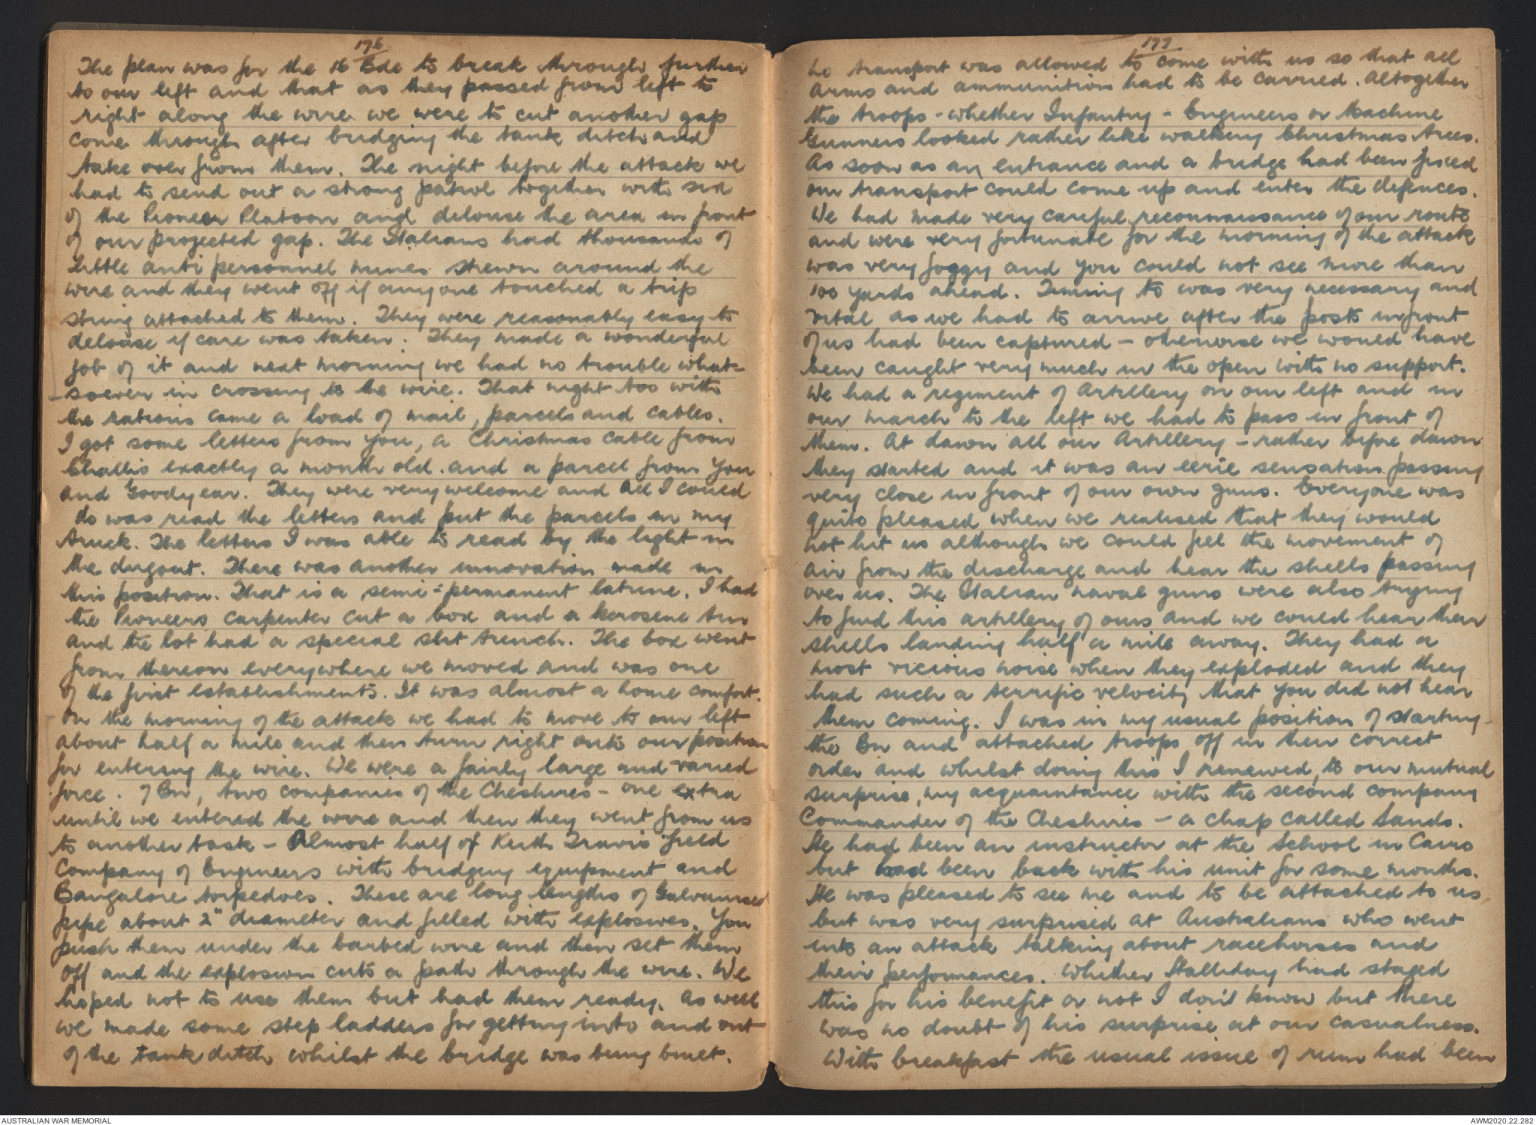 176
The plan was for the 16 Bde to break through further
to our left and that as they passed from left to
right along the wire we were to cut another gap
come through after bridging the tank ditch and
take over from them. The night before the attack we
had to send out a strong patrol together with six
of the Pioneer Platoon and delouse the area in front
of our projected gap. The Italians had thousands of
little anti personnel mines strewn around the
wire and they went off if anyone touched a trip
string attached to them. They were reasonably easy to
delouse if care was taken. They made a wonderful
job of it and next morning we had no trouble what-
soever in crossing to the wire. That night too with
the rations came a load of mail, parcels and cables.
I got some letters from you, a Christmas cable from
Challis exactly a month old. and a parcel from you
and Goodyear. They were very welcome and all I could
do was read the letters and put the parcels in my
truck. The letters I was able to read by the light in
the dugout. There was another innovation made in
this position. That is a semi-permanent latrine. I had
the Pioneers carpenter cut a box and a kerosene tin
and the lot had a special slit trench. The box went
from thereon everywhere we moved and was one
of the first establishments. It was almost a home comfort.
On the morning of the attack we had to move to our left
about half a mile and then turn right onto our position
for entering the wire. We were a fairly large and varied
force. 7 Bn, two companies of the Cheshires - one extra
until we entered the wire and then they went from us
to another task - Almost half of Keith Travis' field
Company of Engineers with bridging equipment and
Bangalore torpedoes. These are long lengths of Galvanised
pipe about 2" diameter and filled with explosives. You
push them under the barbed wire and then set them
off and the explosion cuts a path through the wire. We
hoped not to use them but had them ready. As well
we made some step ladders for getting into and out
of the tank ditch whilst the bridge was being built.
177
No transport was allowed to come with us so that all
arms and ammunition had to be carried. Altogether
the troops - whether Infantry - Engineers or Machine
Gunners looked rather like walking Christmas trees.
As soon as an entrance and a bridge had been forced
our transport could come up and enter the defences.
We had made very careful reconnaissance of our route
and were very fortunate for the morning of the attack
was very foggy and you could not see more than
100 yards ahead. Timing to was very necessary and
vital as we had to arrive after the posts in front
of us had been captured - otherwise we would have
been caught very much in the open with no support.
We had a regiment of Artillery on our left and in
our march to the left we had to pass in front of
them. At dawn all our Artillery - rather before dawn
they started and it was an eerie sensation passing
very close in front of our own guns. Everyone was
quite pleased when we realised that they would
not hit us although we could feel the movement of
air from the discharge and hear the shells passing
over us. The Italian naval guns were also trying
to find this artillery of ours and we could hear their
shells landing half a mile away. They had a
most vicious noise when they exploded and they
had such a terrific velocity that you did not hear
them coming. I was in my usual position of starting
the Bn and attached troops off in their correct
order and whilst doing this I renewed, to our mutual
surprise, my acquaintance with the second company
Commander of the Cheshires - a chap called Sands.
He had been an instructor at the School in Cairo
but had been back with his unit for some months.
He was pleased to see me and to be attached to us
but was very surprised at Australians who went
into an attack talking about racehorses and
their performances. Whether Halliday had staged
this for his benefit or not I don't know but there
was no doubt of his surprise at our casualness.
With breakfast the usual issue of rum had been
AUSTRALIAN WAR MEMORIAL
AWM2020.22.282